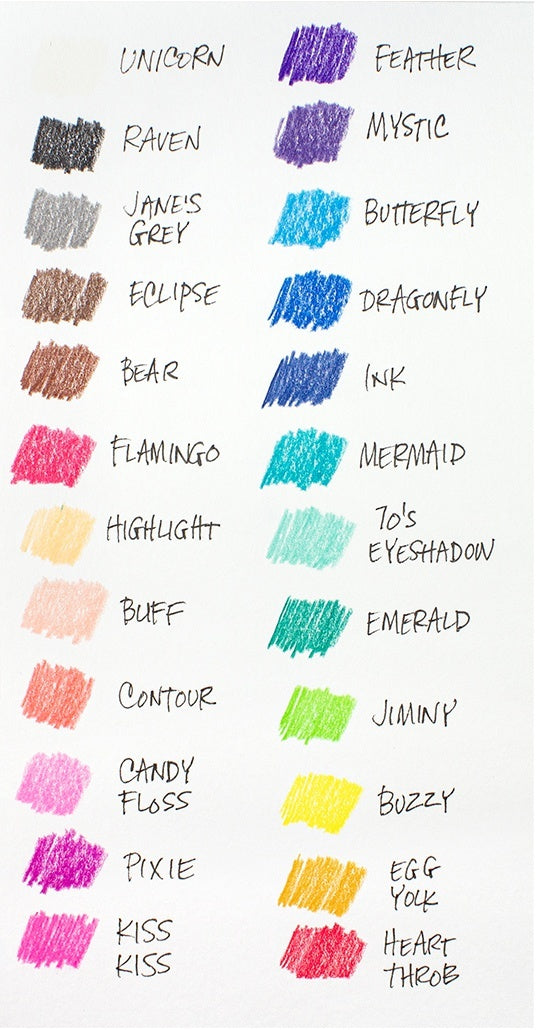 UNICORN
RAVEN
JANE'S
GREY
ECLIPSE
BEAR
FLAMINGO
HIGHLIGHT
BUFF
CONTOUR
CANDY
FLOSS
PIXIE
KISS
KISS
FEATHER
MYSTIC
BUTTERFLY
DRAGONFLY
INK
MERMAID
70'S
EYESHADOW
EMERALD
JIMINY
BUZZY
EGG
YOLK
HEART
THROB